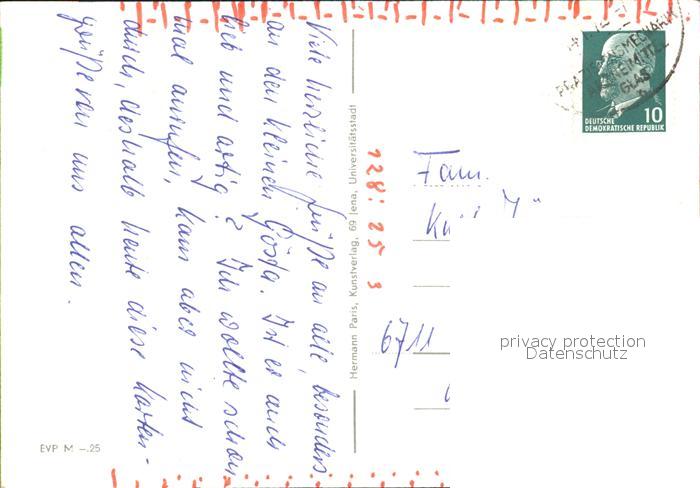 Viele herzliche Grüße an alle, besonders
an den kleinen Gösta. Ist er auch
lieb und artig? Ich wollte schon
mal anrufen, kam aber nicht
durch, deshalb heute diese Karten-
grüße von uns allen.
Hermann Paris, Kunstverlag, 69 Jena, Universitätsstadt
128: 25 3
Fam.
6711
DEUTSCHE
DEMOKRATISCHE REPUBLIK
10
GLAS
EVP M –.25
privacy protection
Datenschutz